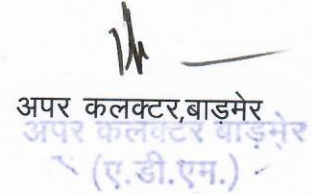 अपर कलक्टर,बाड़मेर
अपर कलेक्टर बाड़मेर
(ए.डी.एम.)